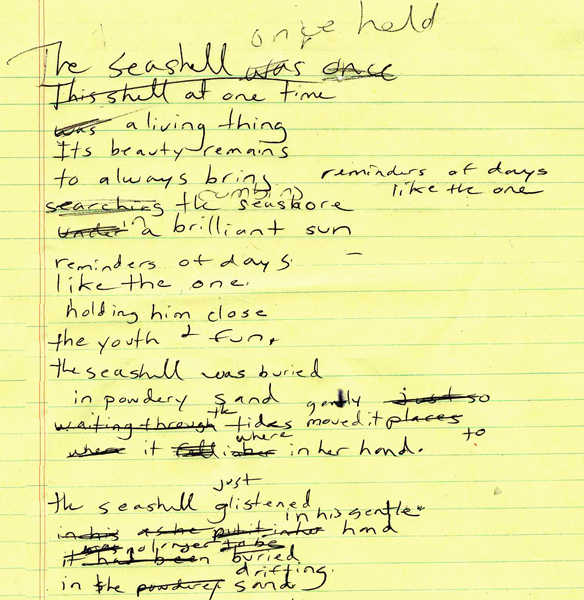 once held
The seashell was once
This shell at one time
was a living thing
Its beauty remains
to always bring reminders of days
like the one
searching the seashore
under in a brilliant sun
reminders of days
like the one.
holding him close
the youth & fun,
the seashell was buried
in powdery sand gently just so
waiting through the tides moved it places
where it fell where in her hand. to
just
the seashell glistened
in his as he put it in his gentle hand
was no longer to be
it had been buried
drifting
in the powdery sand